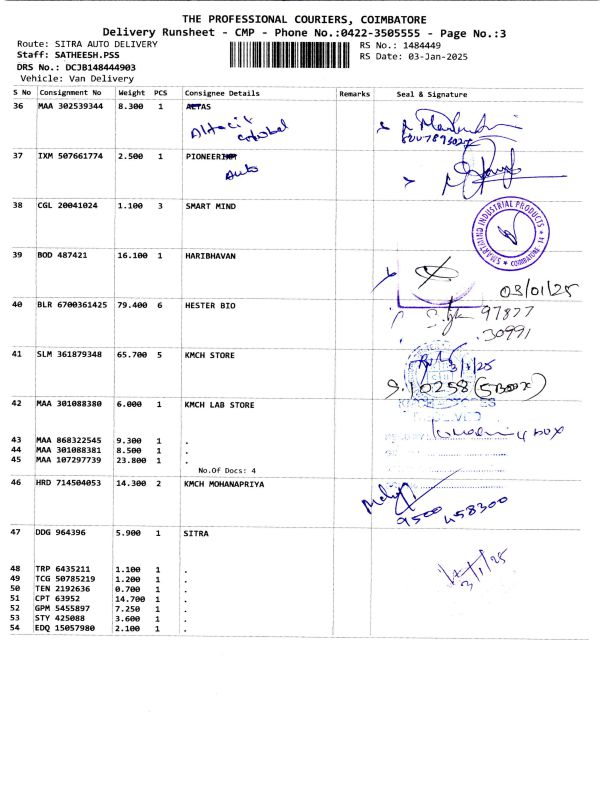 THE PROFESSIONAL COURIERS, COIMBATORE
Delivery Runsheet - CMP - Phone No.:0422-3505555 - Page No.:3
Route: SITRA AUTO DELIVERY RS No.: 1484449
Staff: SATHEESH.PSS RS Date: 03-Jan-2025
DRS No.: DCJB148444903
Vehicle: Van Delivery
S No Consignment No Weight PCS Consignee Details Remarks Seal & Signature
36 MAA 302539344 8.300 1
37 IXM 507661774 2.500 1 PIONEER
Auto
38 CGL 20041024 1.100 3 SMART MIND
SMARTMIND INDUSTRIAL PRODUCTS
COIMBATORE
39 BOD 487421 16.100 1 HARIBHAVAN
03/01/25
40 BLR 6700361425 79.400 6 HESTER BIO
97877
30991
41 SLM 361879348 65.700 5 KMCH STORE
3/1/25
(5 Box)
42 MAA 301088380 6.000 1 KMCH LAB STORE
4 box
43 MAA 868322545 9.300 1 .
44 MAA 301088381 8.500 1 .
45 MAA 107297739 23.800 1 .
No.Of Docs: 4
46 HRD 714504053 14.300 2 KMCH MOHANAPRIYA
9500 458300
47 DDG 964396 5.900 1 SITRA
3/1/25
48 TRP 6435211 1.100 1 .
49 TCG 50785219 1.200 1 .
50 TEN 2192636 0.700 1 .
51 CPT 63952 14.700 1 .
52 GPM 5455897 7.250 1 .
53 STY 425088 3.600 1 .
54 EDQ 15057980 2.100 1 .